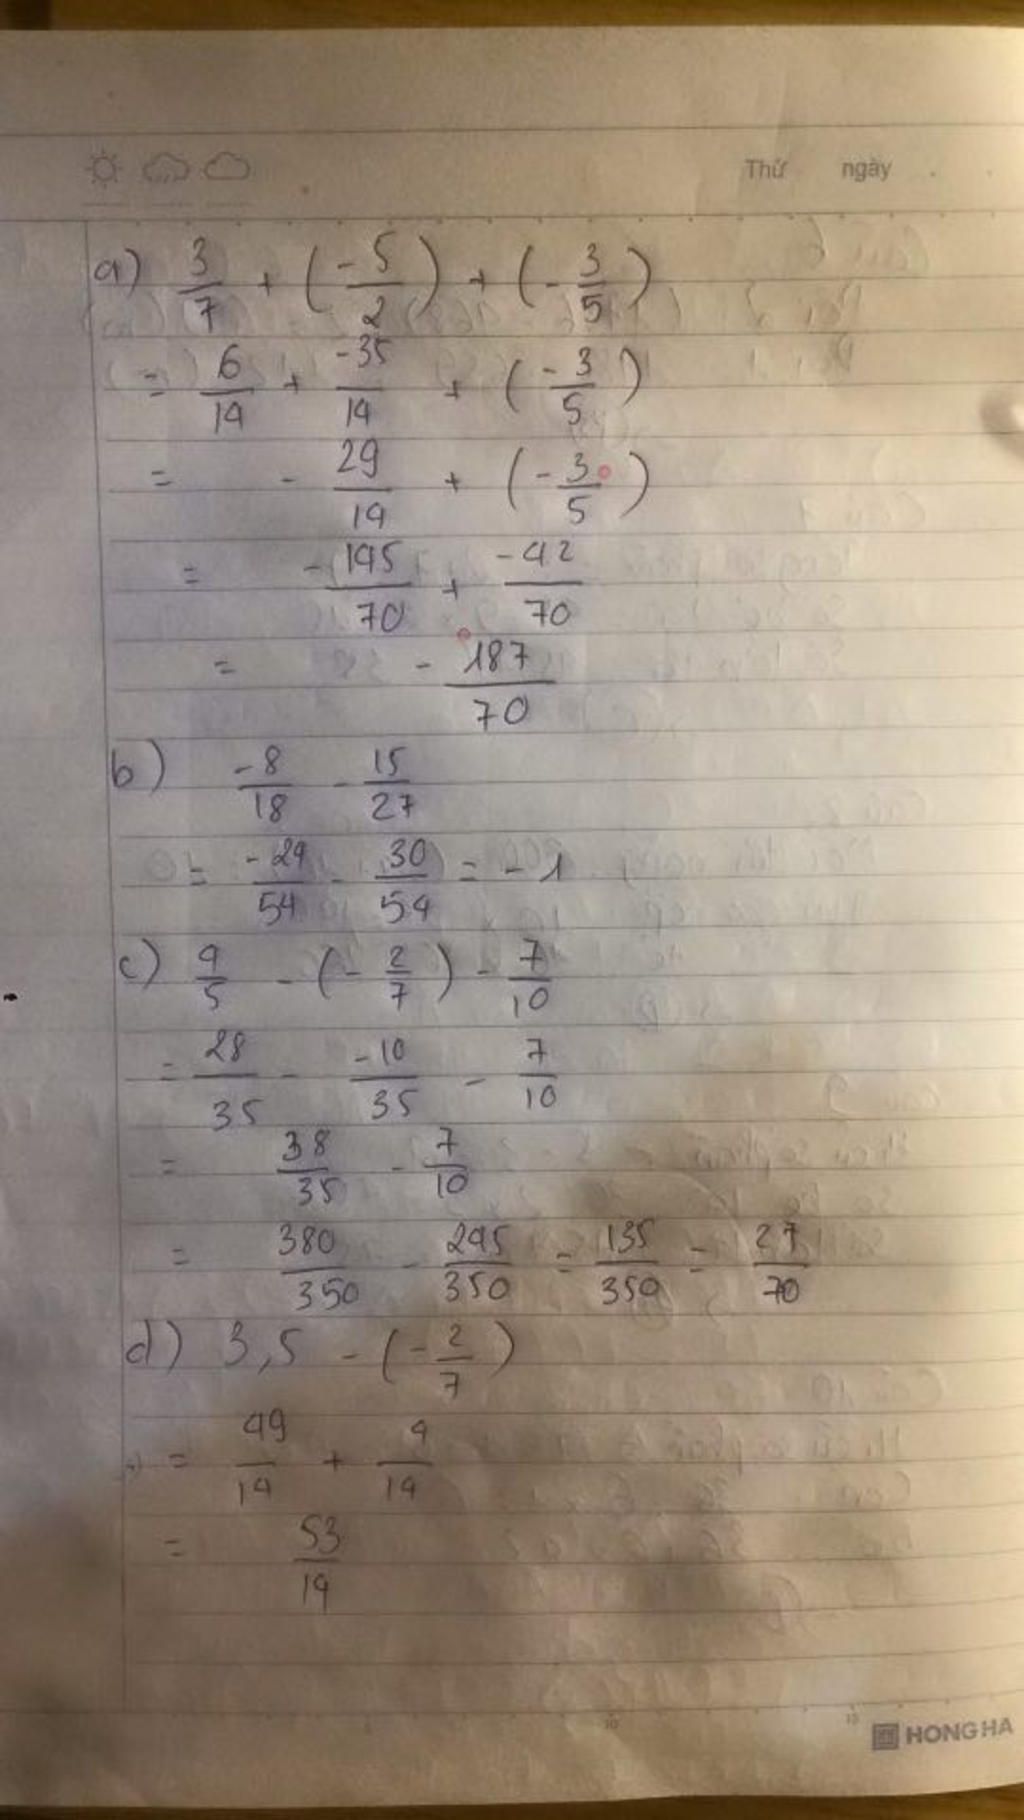 Thứ ngày
a) 3/7 + (-5/2) + (-3/5)
= 6/14 + -35/14 + (-3/5)
= - 29/14 + (-3/5)
= - 145/70 + -42/70
= - 187/70
b) -8/18 - 15/27
= -24/54 - 30/54 = -1
c) 4/5 - (-2/7) - 7/10
= 28/35 - -10/35 - 7/10
= 38/35 - 7/10
= 380/350 - 245/350 = 135/350 = 27/70
d) 3,5 - (-2/7)
= 49/14 + 4/14
= 53/14
HONG HA